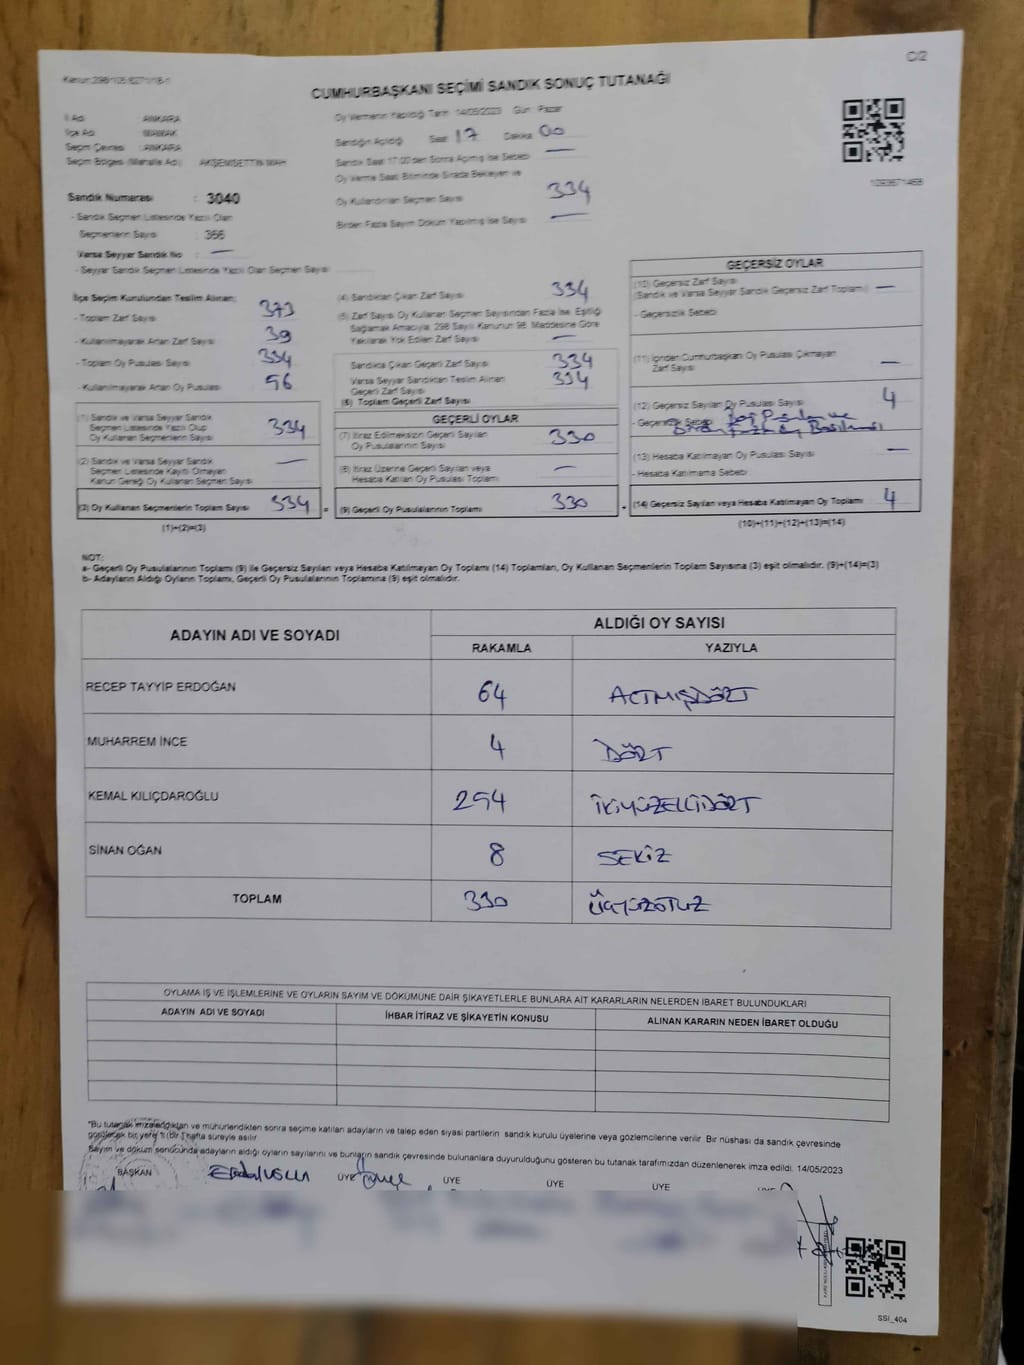 C/2
CUMHURBAŞKANI SEÇİMİ SANDIK SONUÇ TUTANAĞI
Oy Vermenin Yapıldığı Tarih 14/05/2023 Gün Pazar
İl Adı ANKARA
İlçe Adı MAMAK
Seçim Çevresi : ANKARA
Seçim Bölgesi (Mahalle Adı) AKŞEMSETTİN MAH
Sandık Numarası : 3040
- Sandık Seçmen Listesinde Yazılı Olan
Seçmenlerin Sayısı : 366
Varsa Seyyar Sandık No : —
- Seyyar Sandık Seçmen Listesinde Yazılı Olan Seçmen Sayısı
Sandığın Açıldığı Saat 17 Dakika 00
Sandık Saat 17:00'den Sonra Açılmış İse Sebebi —
Oy Verme Saati Bitiminde Sırada Bekleyen ve
Oy Kullandırılan Seçmen Sayısı 334
Birden Fazla Sayım Döküm Yapılmış İse Sayısı —
İlçe Seçim Kurulundan Teslim Alınan;
- Toplam Zarf Sayısı 373
- Kullanılmayarak Artan Zarf Sayısı 39
- Toplam Oy Pusulası Sayısı
- Kullanılmayarak Artan Oy Pusulası
(1) Sandık ve Varsa Seyyar Sandık
Seçmen Listesinde Yazılı Olup
Oy Kullanan Seçmenlerin Sayısı 334
(2) Sandık ve Varsa Seyyar Sandık
Seçmen Listesinde Kayıtlı Olmayan
Kanun Gereği Oy Kullanan Seçmen Sayısı —
(3) Oy Kullanan Seçmenlerin Toplam Sayısı 334 =
(1)+(2)=(3)
(4) Sandıktan Çıkan Zarf Sayısı 334
(5) Zarf Sayısı Oy Kullanan Seçmen Sayısından Fazla İse, Eşitliği
Sağlamak Amacıyla, 298 Sayılı Kanunun 98. Maddesine Göre
Yakılarak Yok Edilen Zarf Sayısı —
Sandıkta Çıkan Geçerli Zarf Sayısı 334
Varsa Seyyar Sandıktan Teslim Alınan
Geçerli Zarf Sayısı
(6) Toplam Geçerli Zarf Sayısı 334
GEÇERLİ OYLAR
(7) İtiraz Edilmeksizin Geçerli Sayılan
Oy Pusulalarının Sayısı 330
(8) İtiraz Üzerine Geçerli Sayılan veya
Hesaba Katılan Oy Pusulası Toplamı —
(9) Geçerli Oy Pusulalarının Toplamı 330 +
GEÇERSİZ OYLAR
(10) Geçersiz Zarf Sayısı
(Sandık ve Varsa Seyyar Sandık Geçersiz Zarf Toplamı) —
- Geçersizlik Sebebi
(11) İçinden Cumhurbaşkanı Oy Pusulası Çıkmayan
Zarf Sayısı —
(12) Geçersiz Sayılan Oy Pusulası Sayısı 4
- Geçersizlik Sebebi
(13) Hesaba Katılmayan Oy Pusulası Sayısı —
- Hesaba Katılmama Sebebi
(14) Geçersiz Sayılan veya Hesaba Katılmayan Oy Toplamı 4
(10)+(11)+(12)+(13)=(14)
NOT:
a- Geçerli Oy Pusulalarının Toplamı (9) ile Geçersiz Sayılan veya Hesaba Katılmayan Oy Toplamı (14) Toplamları, Oy Kullanan Seçmenlerin Toplam Sayısına (3) eşit olmalıdır. (9)+(14)=(3)
b- Adayların Aldığı Oyların Toplamı, Geçerli Oy Pusulalarının Toplamına (9) eşit olmalıdır.
ADAYIN ADI VE SOYADI ALDIĞI OY SAYISI
RAKAMLA YAZIYLA
RECEP TAYYİP ERDOĞAN 64 ALTMIŞDÖRT
MUHARREM İNCE 4 DÖRT
KEMAL KILIÇDAROĞLU 254 İKİYÜZELLİDÖRT
SİNAN OĞAN 8 SEKİZ
TOPLAM 330 ÜÇYÜZOTUZ
OYLAMA İŞ VE İŞLEMLERİNE VE OYLARIN SAYIM VE DÖKÜMÜNE DAİR ŞİKAYETLERLE BUNLARA AİT KARARLARIN NELERDEN İBARET BULUNDUKLARI
ADAYIN ADI VE SOYADI İHBAR İTİRAZ VE ŞİKAYETİN KONUSU ALINAN KARARIN NEDEN İBARET OLDUĞU
*Bu tutanak imzalandıktan ve mühürlendikten sonra seçime katılan adayların ve talep eden siyasi partilerin sandık kurulu üyelerine veya gözlemcilerine verilir. Bir nüshası da sandık çevresinde
görülecek bir yere 1 (bir) hafta süreyle asılır
Sayım ve döküm sonucunda adayların aldığı oyların sayılarını ve bunların sandık çevresinde bulunanlara duyurulduğunu gösteren bu tutanak tarafımızdan düzenlenerek imza edildi. 14/05/2023
BAŞKAN ÜYE ÜYE ÜYE ÜYE
SSİ_404